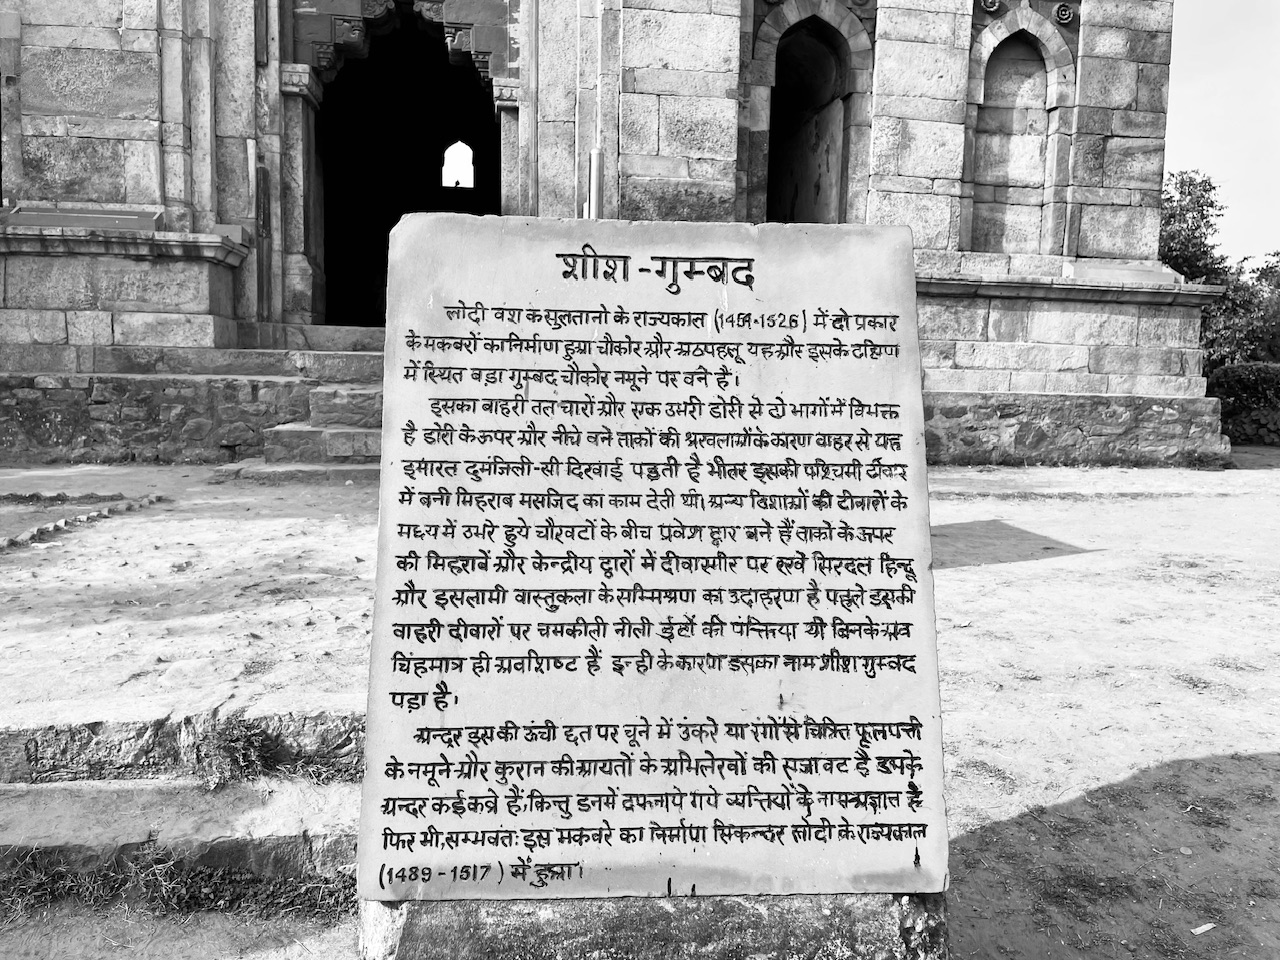 शीश-गुम्बद
लोदी वंश के सुलतानो के राज्यकाल (1451-1526) में दो प्रकार
के मकबरों का निर्माण हुआ चौकोर और अठपहलू यह और इसके दक्षिण
में स्थित बड़ा गुम्बद चौकोर नमूने पर बने हैं।
इसका बाहरी तल चारों और एक उभरी डोरी से दो भागों में विभक्त
है डोरी के ऊपर और नीचे बने ताकों की श्रृखलाओं के कारण बाहर से यह
इमारत दुमंजिली-सी दिखाई पड़ती है भीतर इसकी पश्चिमी दीवार
में बनी मिहराब मसजिद का काम देती थी। अन्य दिशाओं की दीवारों के
मध्य में उभरे हुये चौखटों के बीच प्रवेश द्वार बने हैं ताको के ऊपर
की मिहराबें और केन्द्रीय द्वारों में दीवारगीर पर रखे सिरदल हिन्दू
और इसलामी वास्तुकला के सम्मिश्रण का उदाहरण है पहले इसकी
बाहरी दीवारों पर चमकीली नीली ईंटों की पंक्तिया थी जिनके अब
चिंहमात्र ही अवशिष्ट हैं इन्ही के कारण इसका नाम शीश गुम्बद
पड़ा है।
अन्दर इसकी ऊंची छत पर चूने में उंकरे या रंगों से चित्रित फूलपत्ती
के नमूने और कुरान की आयतों के अभिलेखों की सजावट है इसके
अन्दर कई कब्रे हैं, किन्तु इनमें दफनाये गये व्यक्तियों के नाम अज्ञात हैं
फिर भी, सम्भवतः इस मकबरे का निर्माण सिकन्दर लोदी के राज्यकाल
(1489-1517) में हुआ।